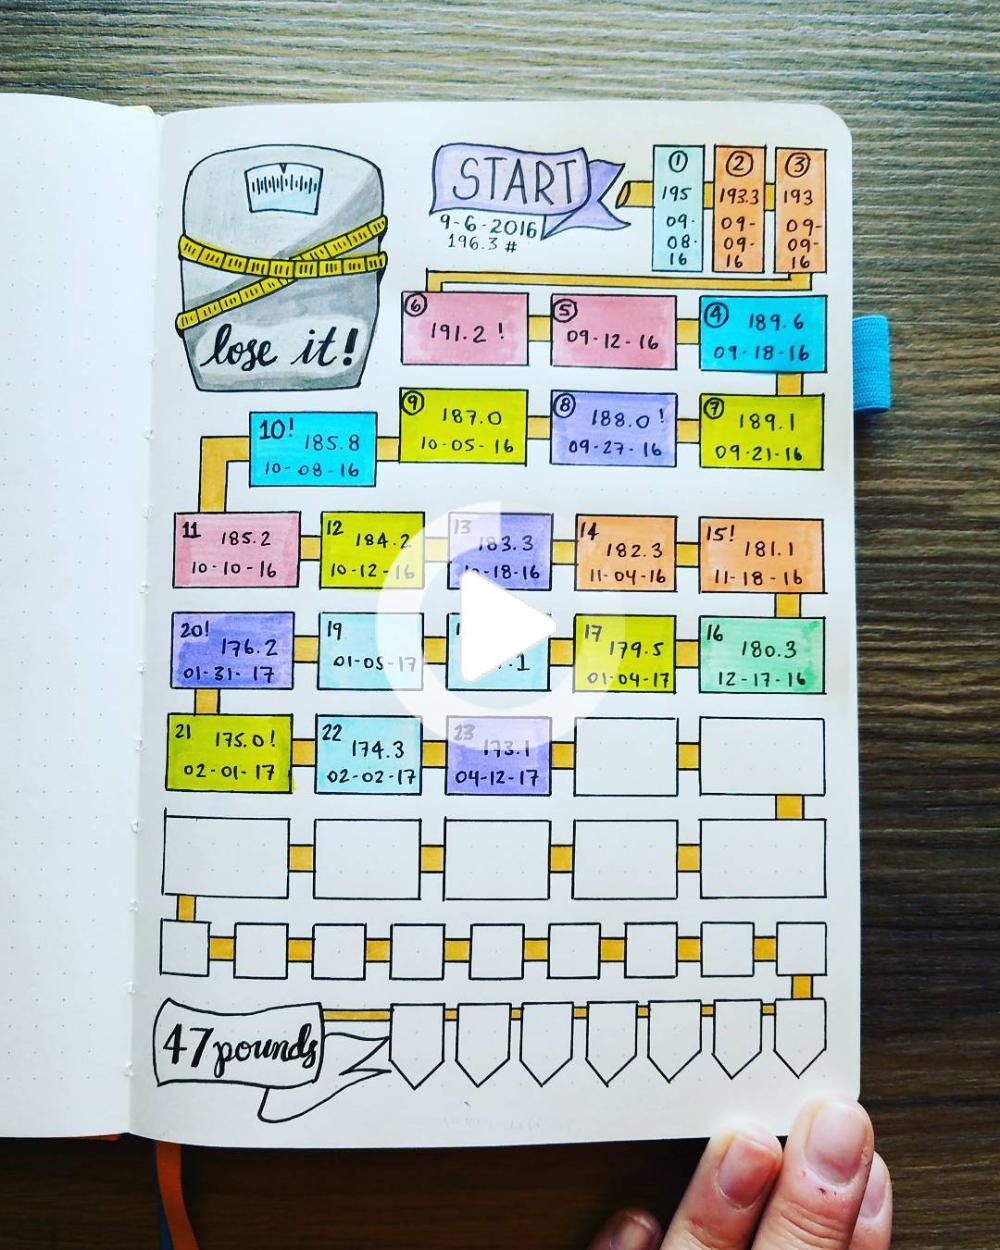 START
9-6-2016
196.3 #
1
195
09-
08-
16
2
193.3
09-
09-
16
3
193
09-
09-
16
lose it!
6
191.2 !
5
09-12-16
4
189.6
09-18-16
9
187.0
10-05-16
8
188.0!
09-27-16
7
189.1
09-21-16
10!
185.8
10-08-16
11
185.2
10-10-16
12
184.2
10-12-16
13
183.3
10-18-16
14
182.3
11-04-16
15!
181.1
11-18-16
20!
176.2
01-31-17
19
01-05-17
17
179.5
01-04-17
16
180.3
12-17-16
21
175.0!
02-01-17
22
174.3
02-02-17
23
173.1
04-12-17
47 pounds